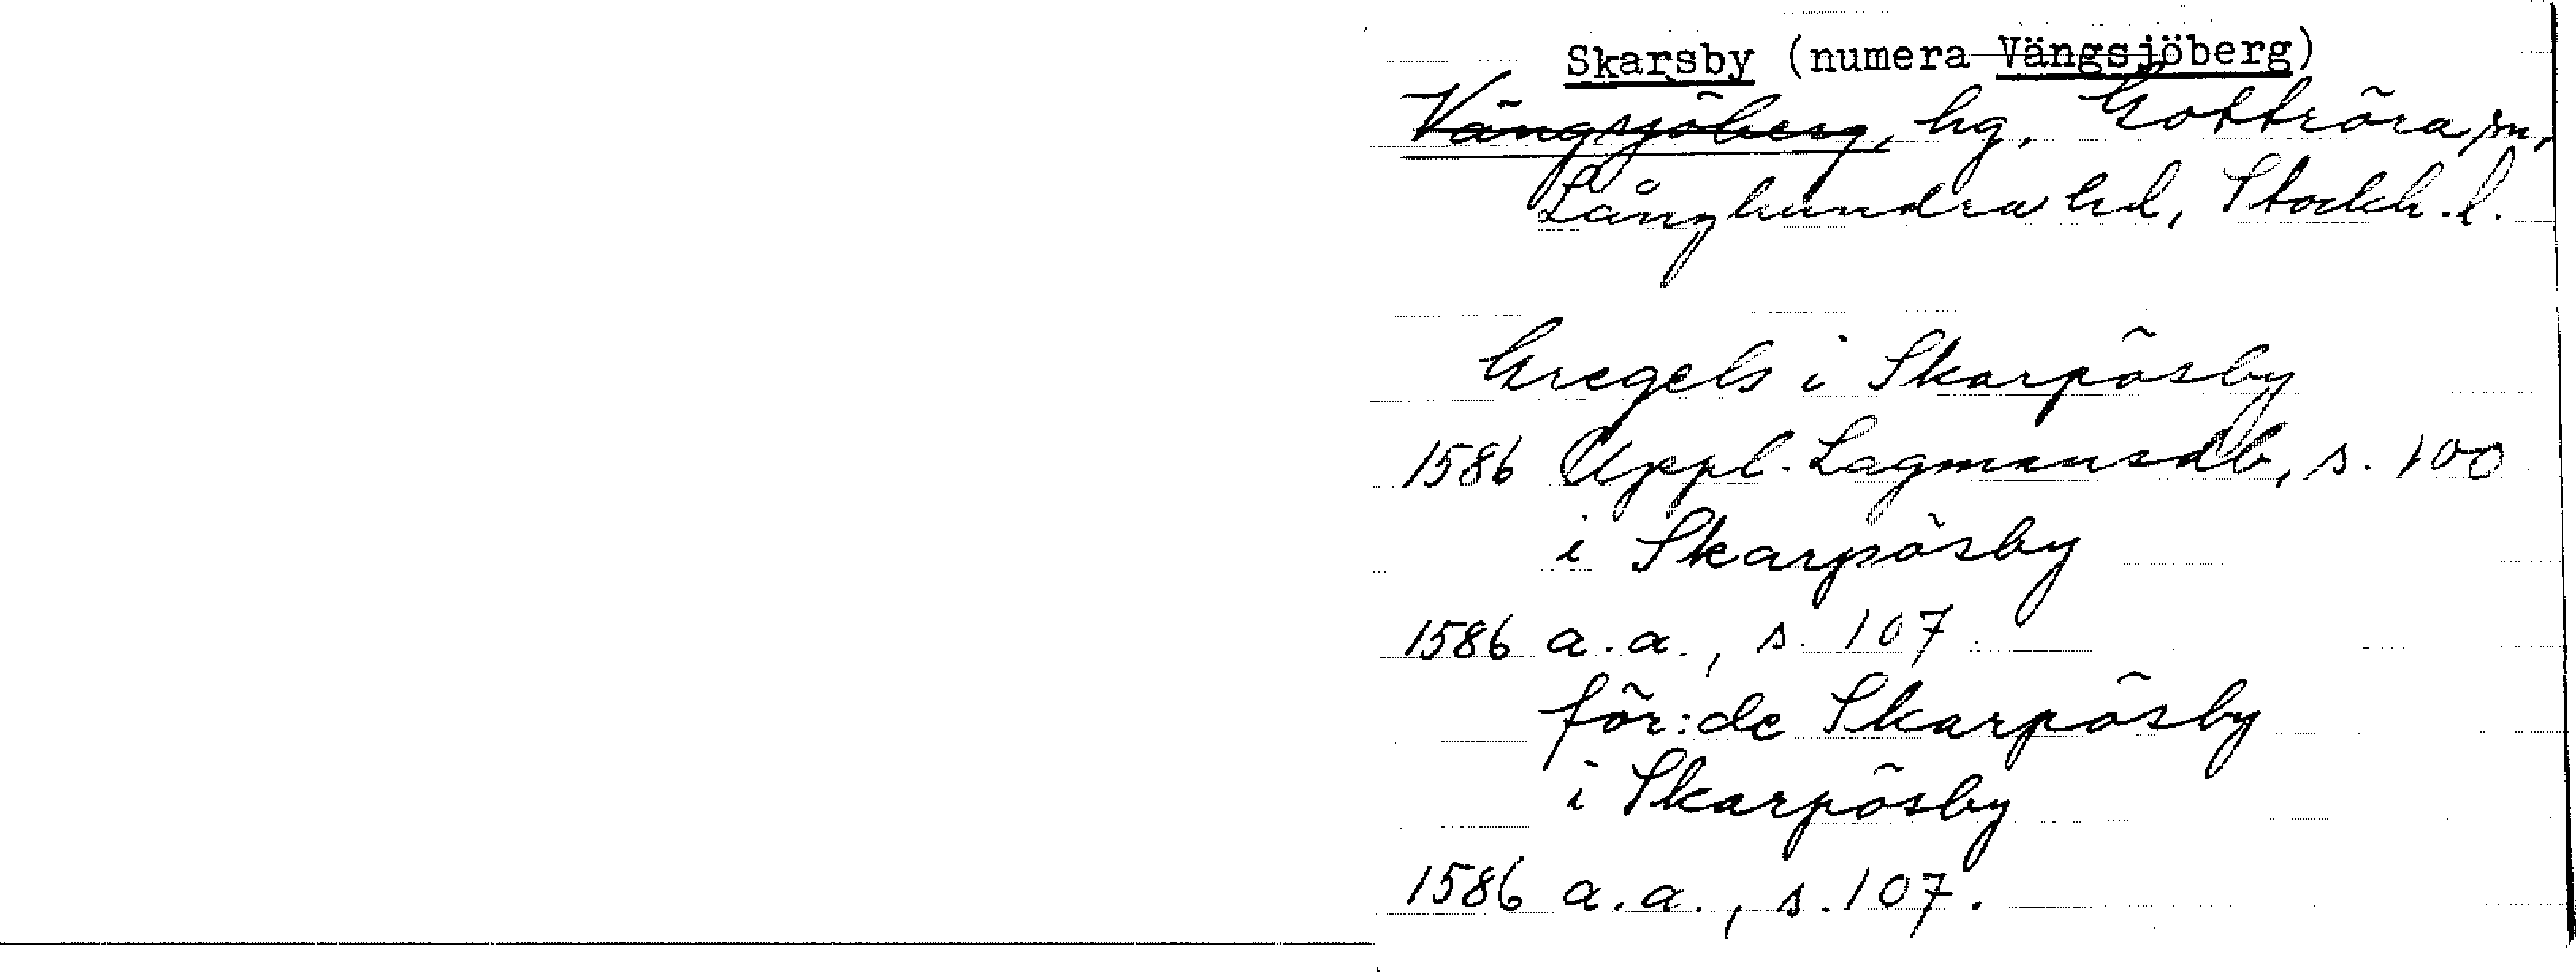 Skarsby (numera Vängsjöberg)
Vängsjöberg, hg, Gottröra sn,
Långhundra hd, Stockh. l.
Gregels i Skarpösby
1586 Uppl. Lagmansdb, s. 100
i Skarpösby
1586 a.a., s. 107
för:de Skarpösby
i Skarpösby
1586 a.a., s. 107.